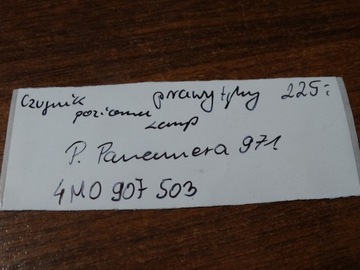 Czujnik prawy tylny 225:-
poziomu
Lamp
P. Panamera 971
4M0 907 503